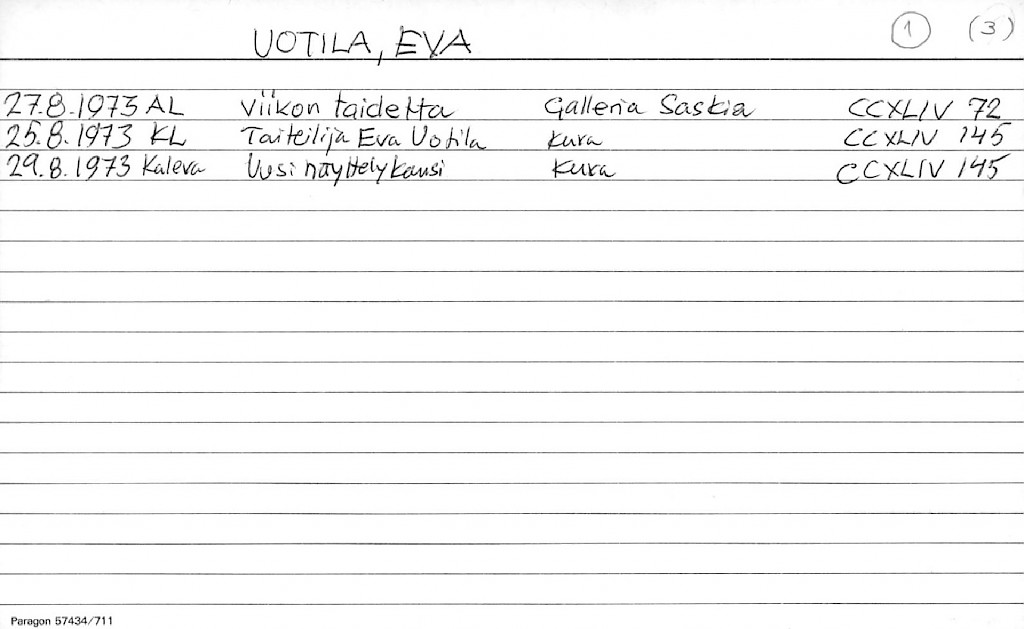 UOTILA, EVA 1 (3)
27.8.1973 AL Viikon taidetta Galleria Saskia CCXLIV 72
25.8.1973 KL Taiteilija Eva Uotila kuva CCXLIV 145
29.8.1973 Kaleva Uusi näyttelykausi kuva CCXLIV 145
Paragon 57434/711